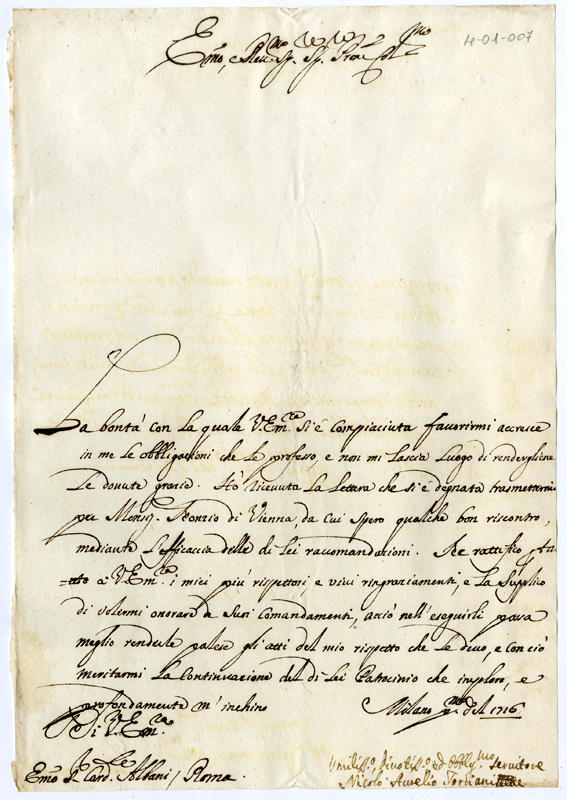 4-01-007
Emo, e Reu.mo Sig. Sig. Pron Col.mo
La bontà con la quale V. Em.za si è compiaciuta favorirmi accresce
in me le obbligazioni che le professo, e non mi lascia luogo di rendergliene
le dovute grazie. Hò ricevuta la lettera che si è degnata trasmettermi
per Monsig. di Vienna, da cui spero qualche bon riscontro,
mediante l'efficaccia delle di lei raccomandazioni. Ne rattifico
=nto à V. Em.za i miei più rispettosi e vivi ringraziamenti, e la supplico
di volermi onorare de suoi Comandamenti, acciò nell'eseguirli possa
meglio renderle palese gli atti del mio rispetto che le devo, e con ciò
meritarmi la continuazione del di lei Patrocinio che imploro, e
profondamente m'inchino
Milano del 1716
Di V. Em.za
Emo S. Card. Albani / Roma.
Umiliss.o Divotiss.o ed Obblig.mo Servitore
Nicolò Aurelio